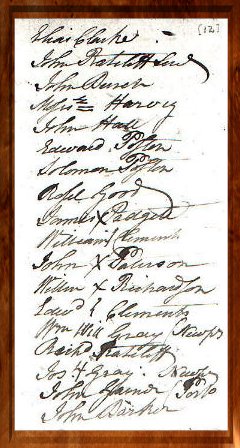 [12]
Elias Clarke
John Ratcliff Senr
John Burch
Moses Harvey
John Hall
Edward Posten
Solomon Posten
Rose Good
James X Padgett
William Clements
John X Paterson
Willm X Richardson
Edwd Clements
Wm Will Gray Newpt
Richd Ratcliff
Jos Gray Newpt
John Garner Porto
John Barker